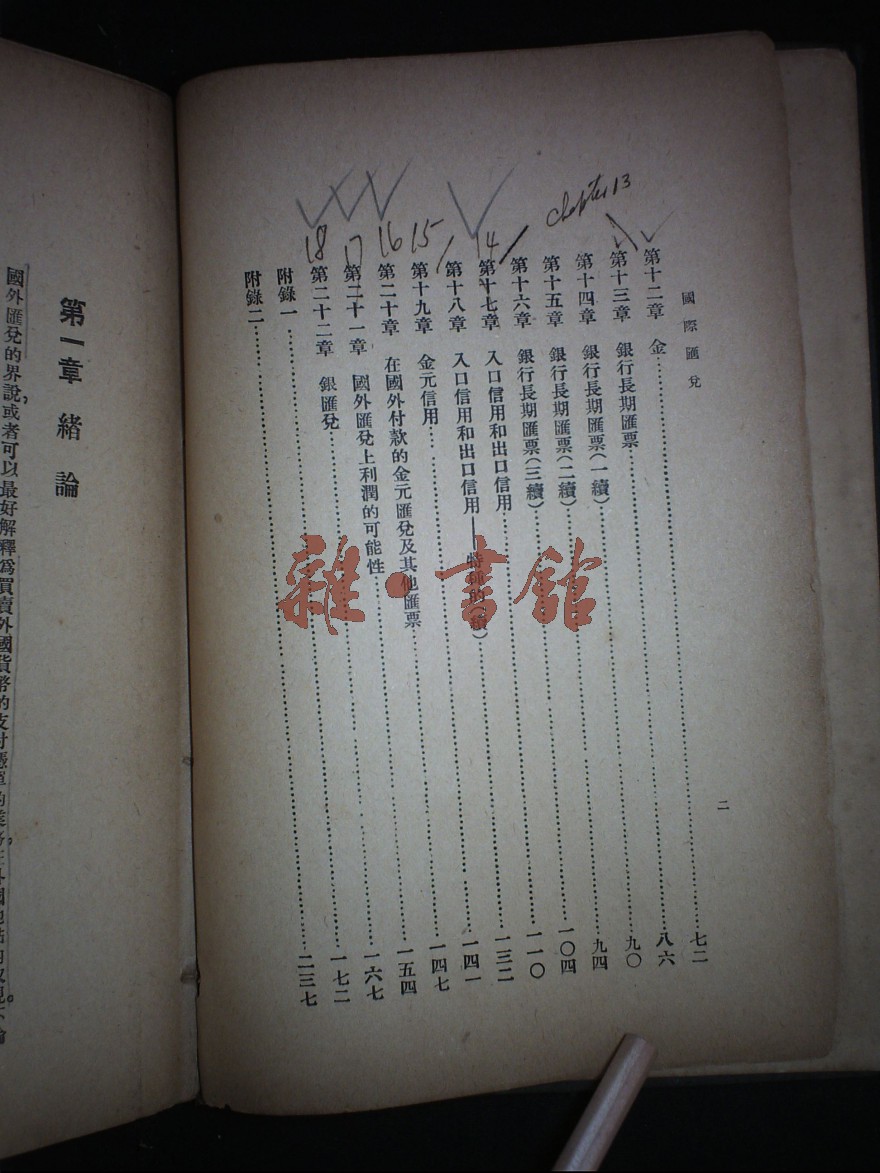 國際匯兌
二
第十二章 金……七二
第十三章 銀行長期匯票……八六
第十四章 銀行長期匯票(一續)……九〇
第十五章 銀行長期匯票(二續)……九四
第十六章 銀行長期匯票(三續)……一〇四
第十七章 入口信用和出口信用……一一〇
第十八章 入口信用和出口信用——特種的(續)……一三二
第十九章 金元信用……一四一
第二十章 在國外付款的金元匯兌及其他匯票……一四七
第二十一章 國外匯兌上利潤的可能性……一五四
第二十二章 銀匯兌……一六七
附錄一……一七二
附錄二……二三七
chapter 13
14
15
16
17
18
雜·書館
第一章 緒論
國外匯兌的界說，或者可以最好解釋爲買賣外國貨幣的支付憑單的